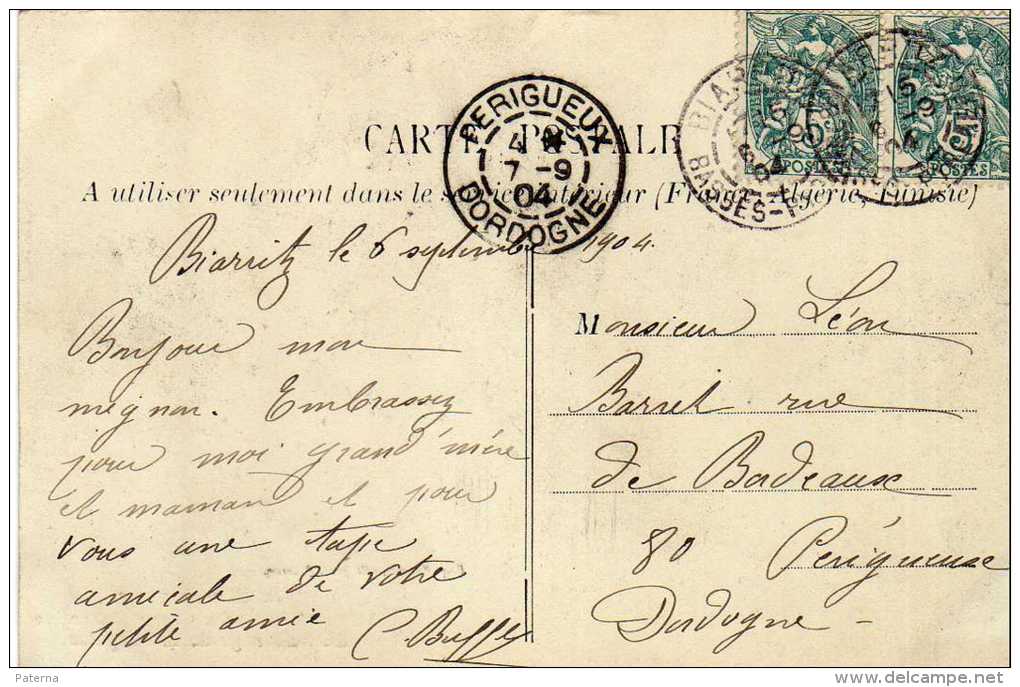 CARTE POSTALE
A utiliser seulement dans le service intérieur (France, Algérie, Tunisie)
PERIGUEUX
4 *
7 - 9
04
DORDOGNE
BASSES-P
04
5
5
POSTES
POSTES
Biarritz le 6 septembre 1904.
Bonjour mon
mignon. Embrassez
pour moi grand'mère
et maman et pour
vous une tape
amicale de votre
petite amie
Monsieur Léon
Barret rue
de Bordeaux
80 Périgueux
Dordogne
Paterna
delcampe.net